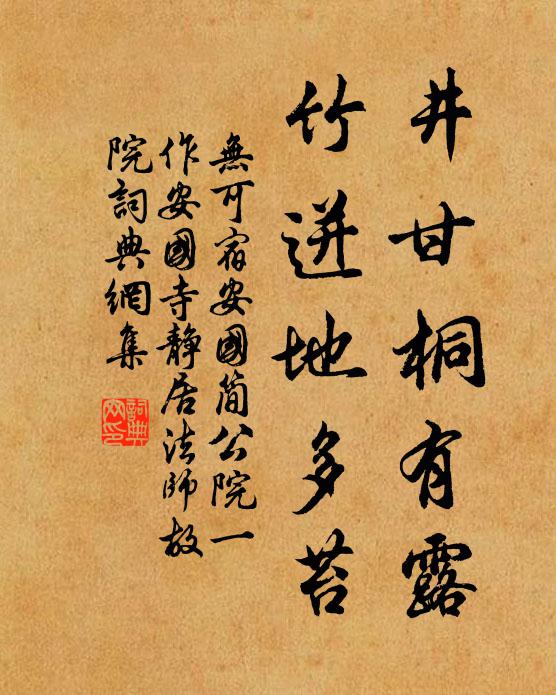 井甘桐有露
竹迸地多苔
無可宿安國簡公院一
作安國寺靜居法師故
院詞典網集
詞典
網印